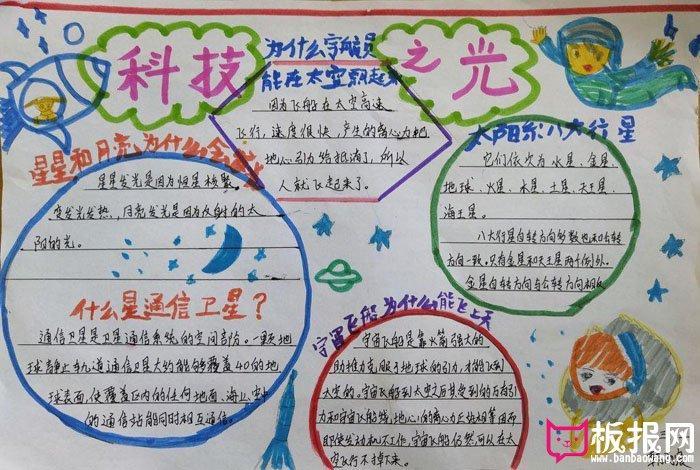 科技
之光
为什么宇航员
能在太空飘起来
因为飞船在太空高速
飞行,速度很快,产生的离心力把
地心引力给抵消了,所以
人就飞起来了。
太阳系八大行星
它们依次为水星、金星、
地球、火星、木星、土星、天王星、
海王星。
八大行星自转方向多数也和公转
方向一致。只有金星和天王星两个例外。
金星自转方向与公转方向相反
星星和月亮为什么会
星星发光是因为恒星核聚
变发光发热,月亮发光是因为反射的太
阳的光。
什么星通信卫星?
通信卫星是卫星通信系统的空间部份。一颗地
球静止轨道通信卫星大约能够覆盖40的地
球表面,使覆盖区内的任何地面、海上、空中
的通信站能同时相互通信。
宇宙飞船为什么能飞上天
宇宙飞船是靠火箭强大的
助推力克服了地球的引力,才能飞到
太空的。宇宙飞船到太空之后其受到的万有引
力和宇宙飞船绕地心的离心力正好相等因而
即使发动机不工作,宇宙飞船仍然可以在太
空飞行不掉下来。
板报网
www.banbaowang.com